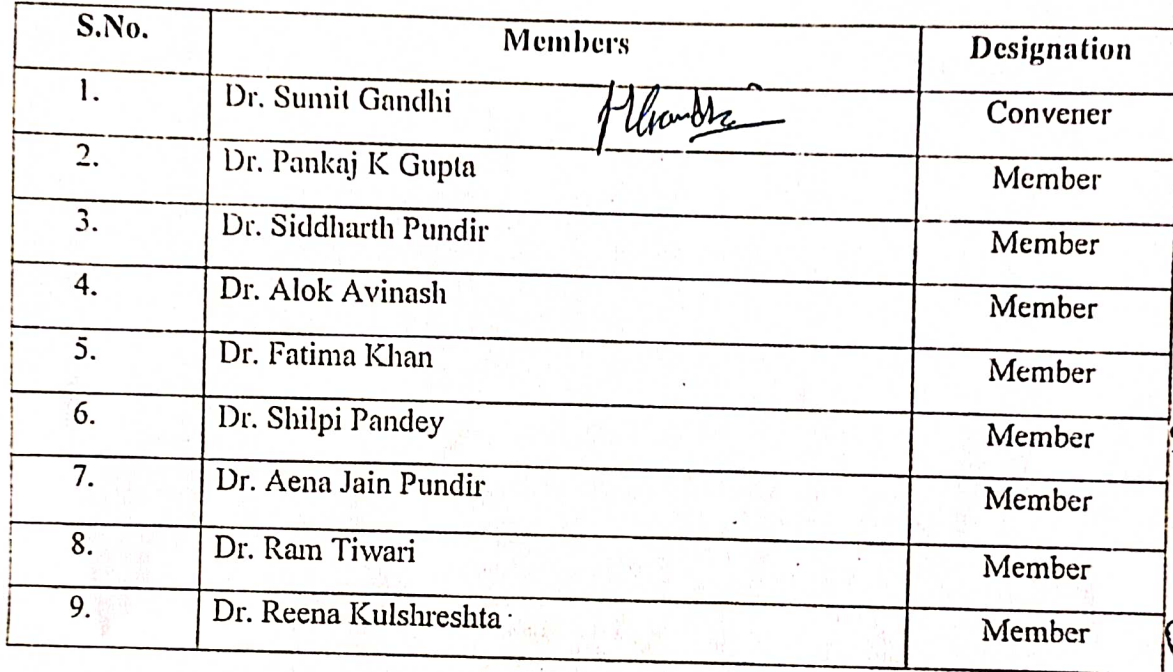 S.No. Members Designation
1. Dr. Sumit Gandhi Convener
2. Dr. Pankaj K Gupta Member
3. Dr. Siddharth Pundir Member
4. Dr. Alok Avinash Member
5. Dr. Fatima Khan Member
6. Dr. Shilpi Pandey Member
7. Dr. Aena Jain Pundir Member
8. Dr. Ram Tiwari Member
9. Dr. Reena Kulshreshta Member